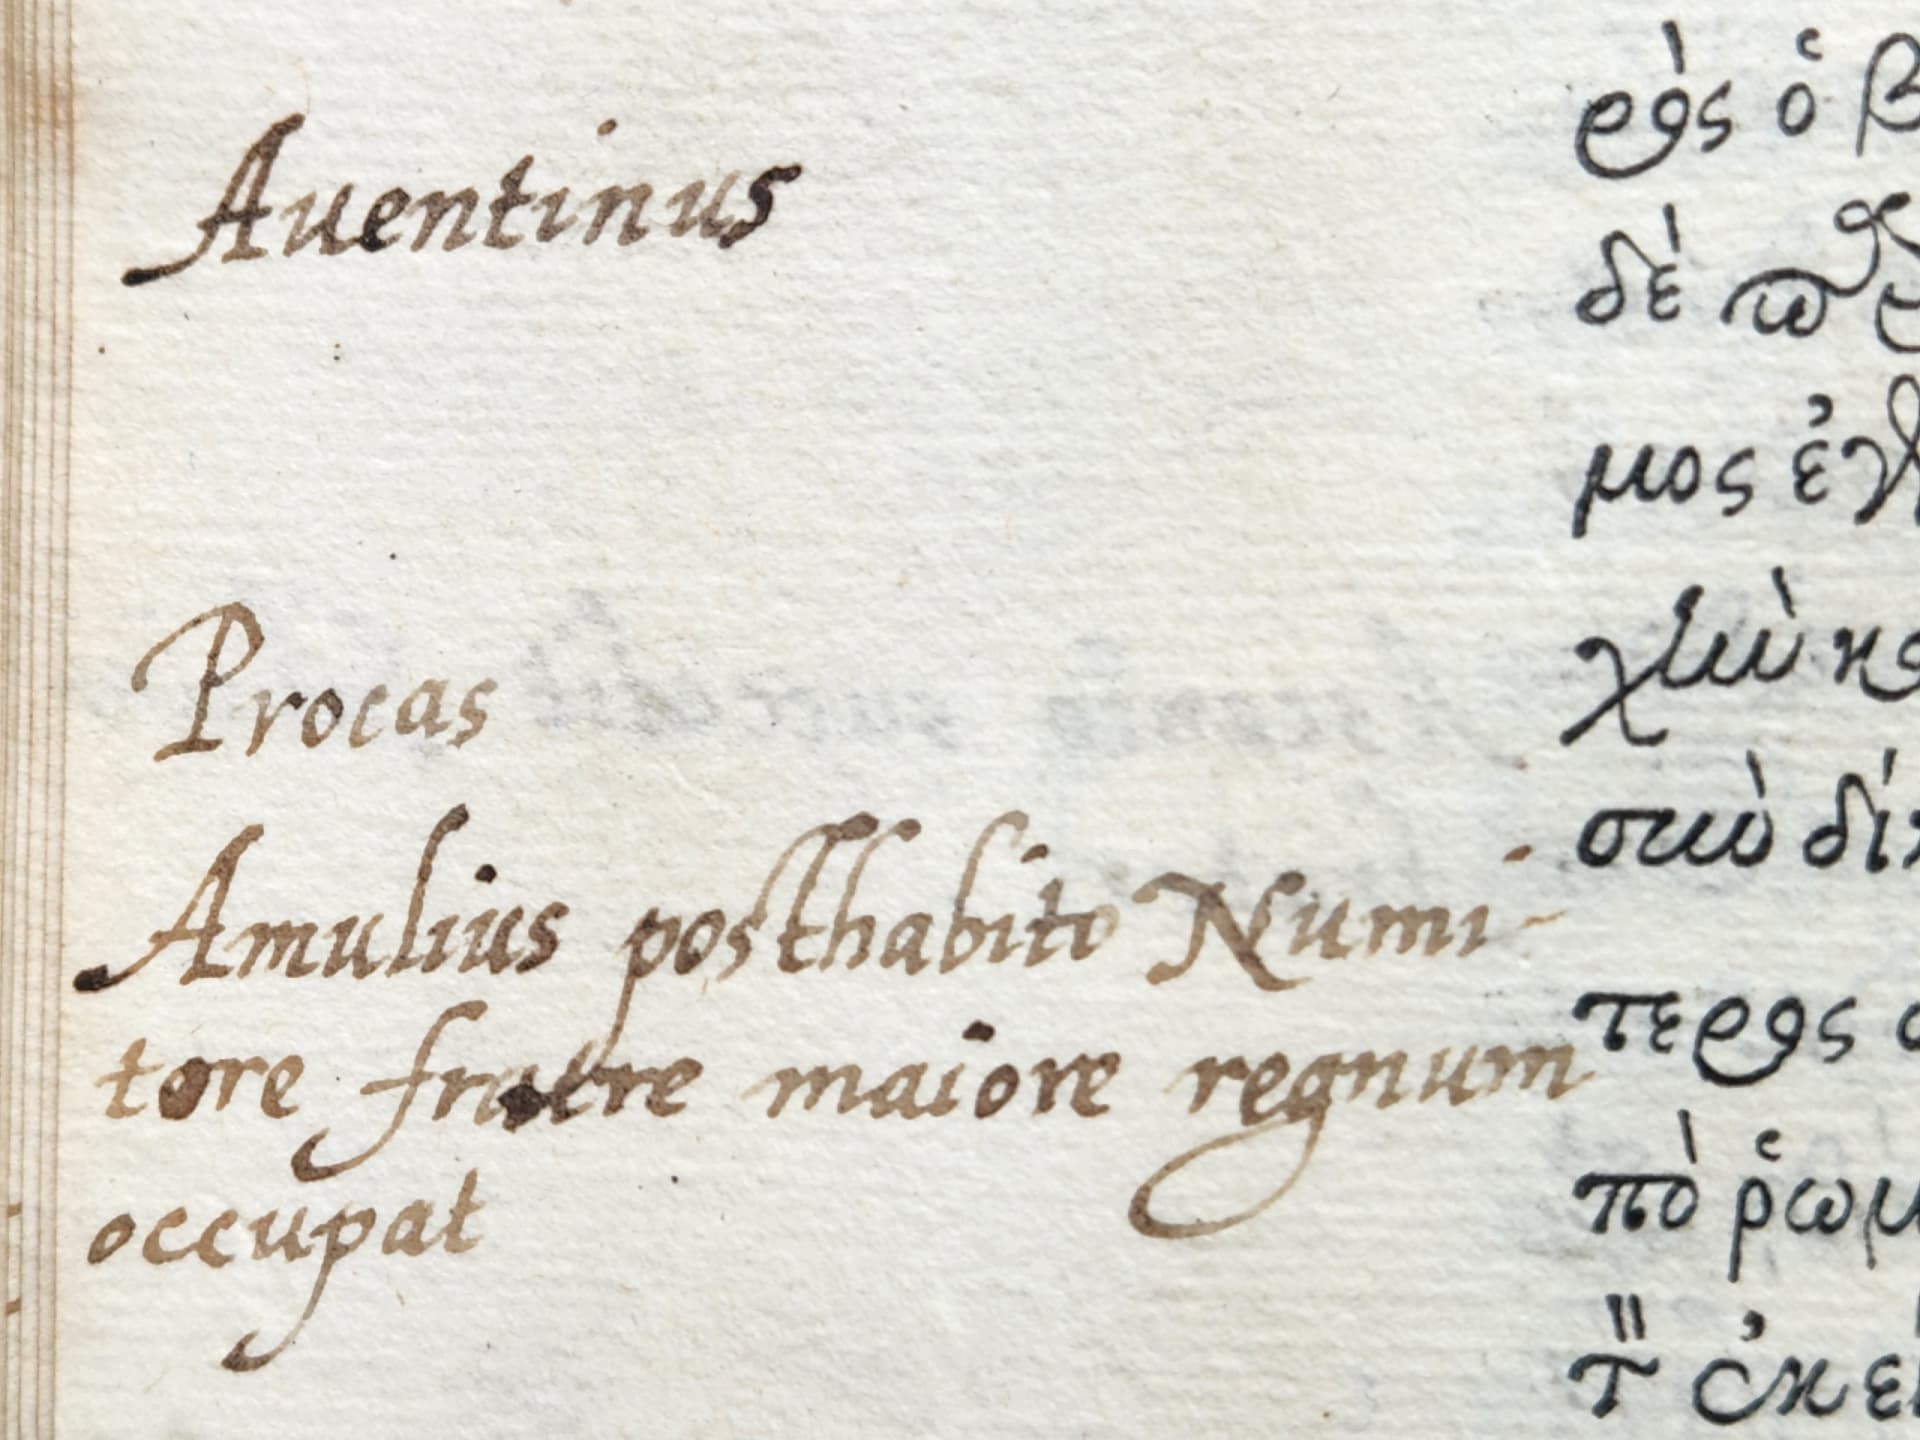 Auentinus
Procas
Amulius posthabito Numi-
tore fratre maiore regnum
occupat
ρὸς ὁ β
δὲ
μος ἐγ
χὺν κ
σκὺ δί
τερος
πὸ ῥωμ
τ̎ ἐκε